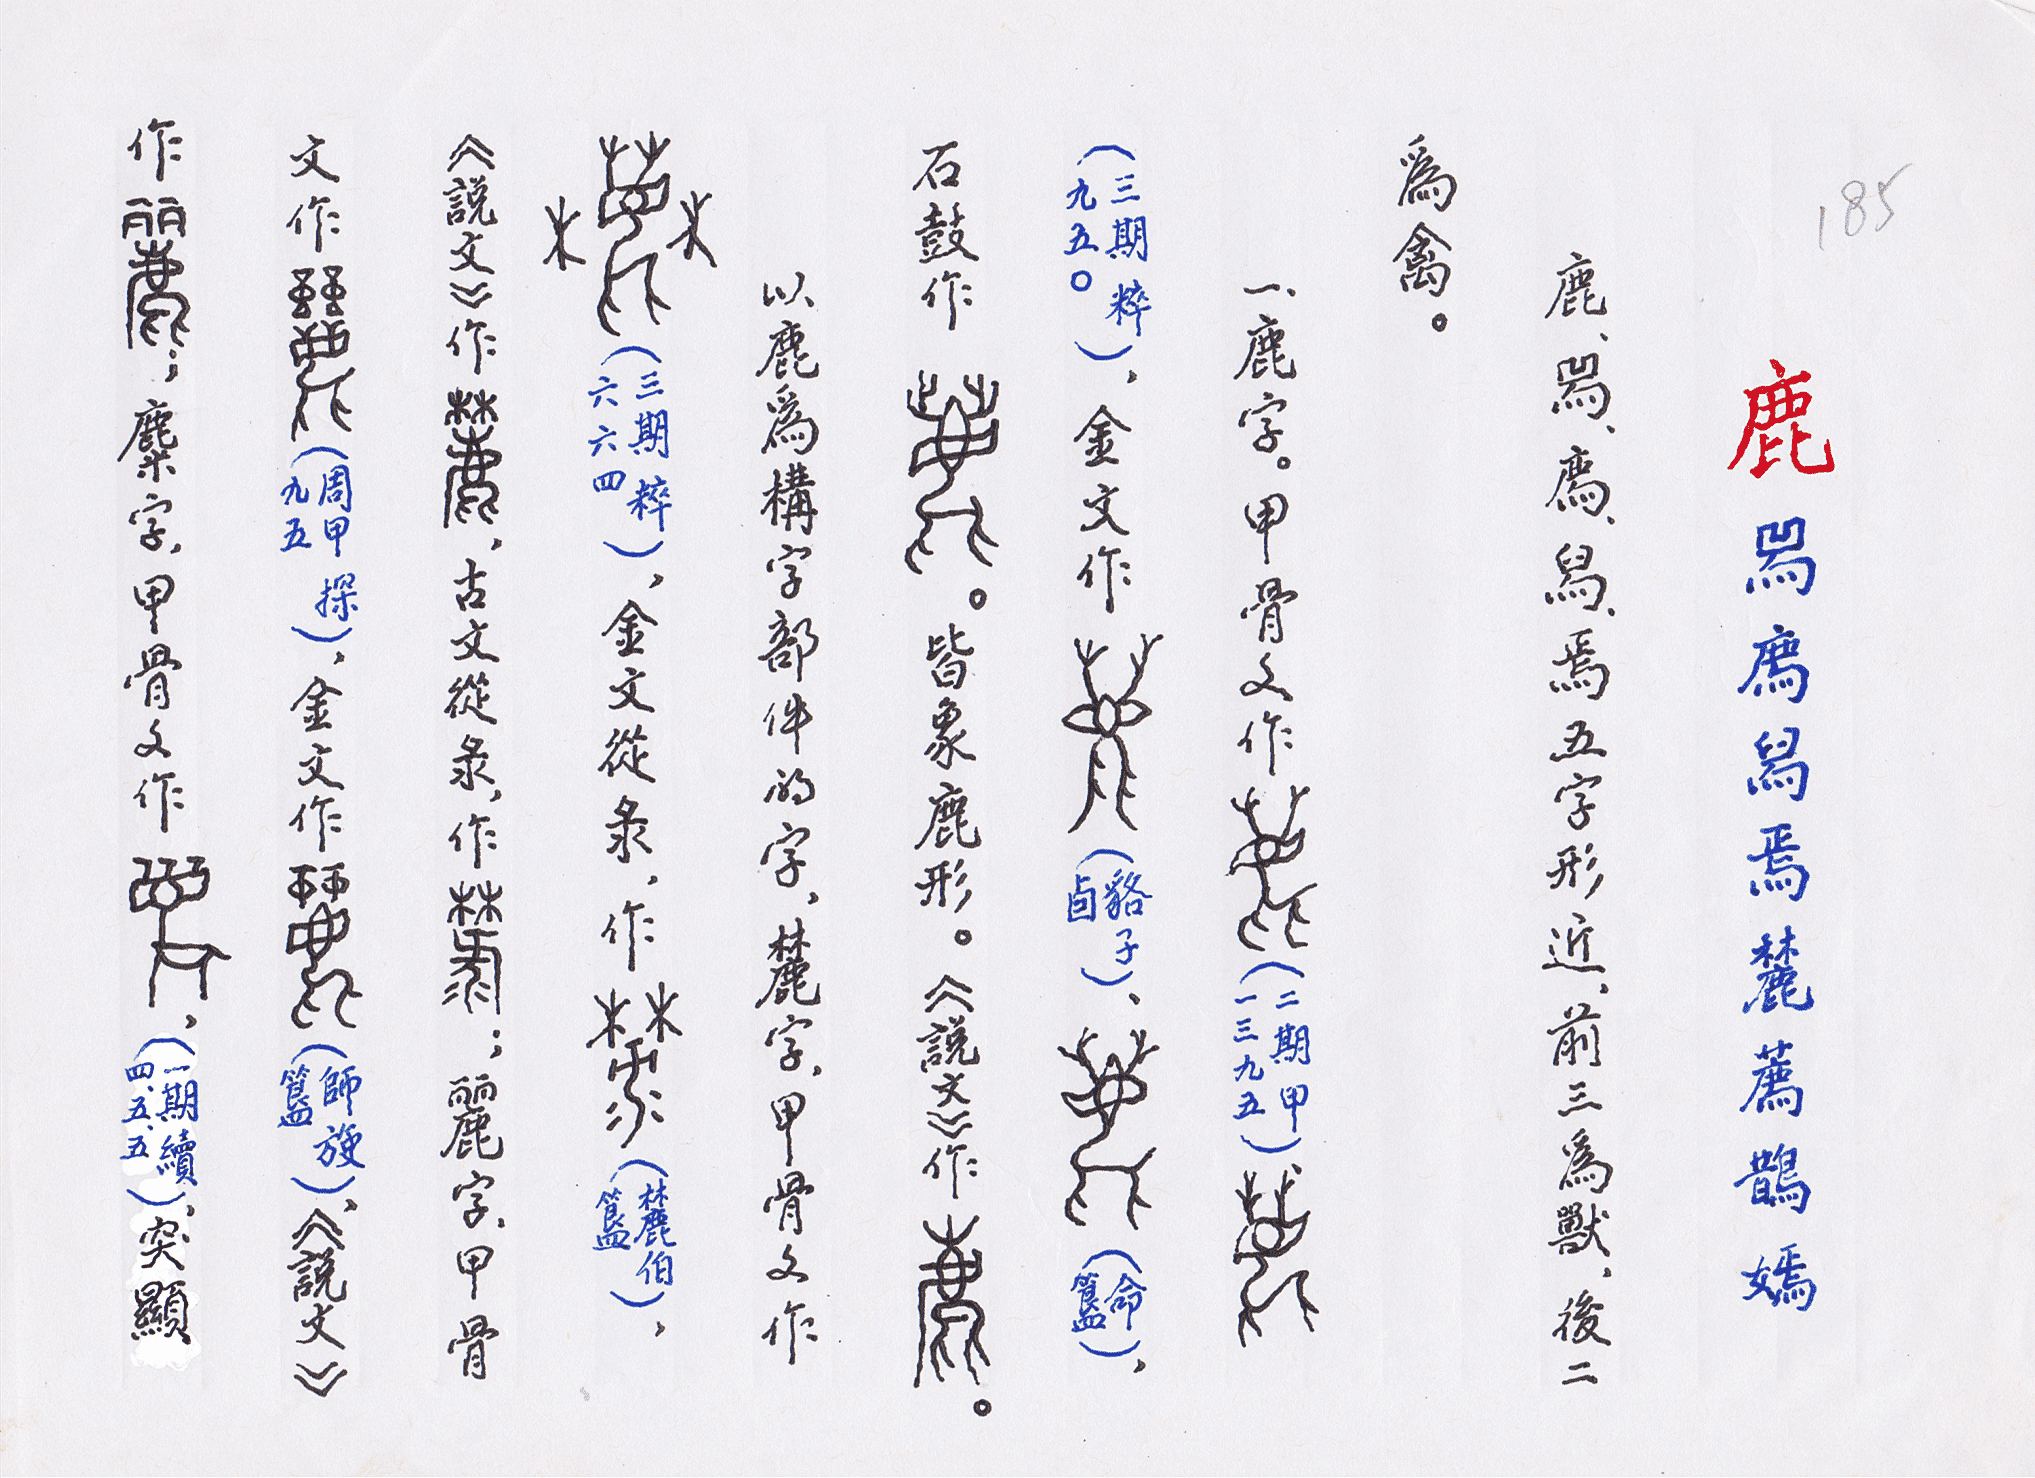 185
鹿 𤉡 廌 舄 焉 麓 薦 鵲 嫣
鹿、𤉡、廌、舄、焉五字形近、前三爲獸、後二
爲禽。
一、鹿字。甲骨文作(二期甲一三九五)、
(三期粹九五〇)，金文作(貉子卣)、(命簋)，
石鼓作。皆象鹿形。《説文》作。
以鹿爲構字部件的字、麓字、甲骨文作
(三期粹六六四)，金文從彔，作(麓伯簋)，
《説文》作，古文從彔，作；麗字、甲骨
文作(周甲探九五)，金文作(師旋簋)、《説文》
作；麇字、甲骨文作，(一期續四、五、五)、突顯